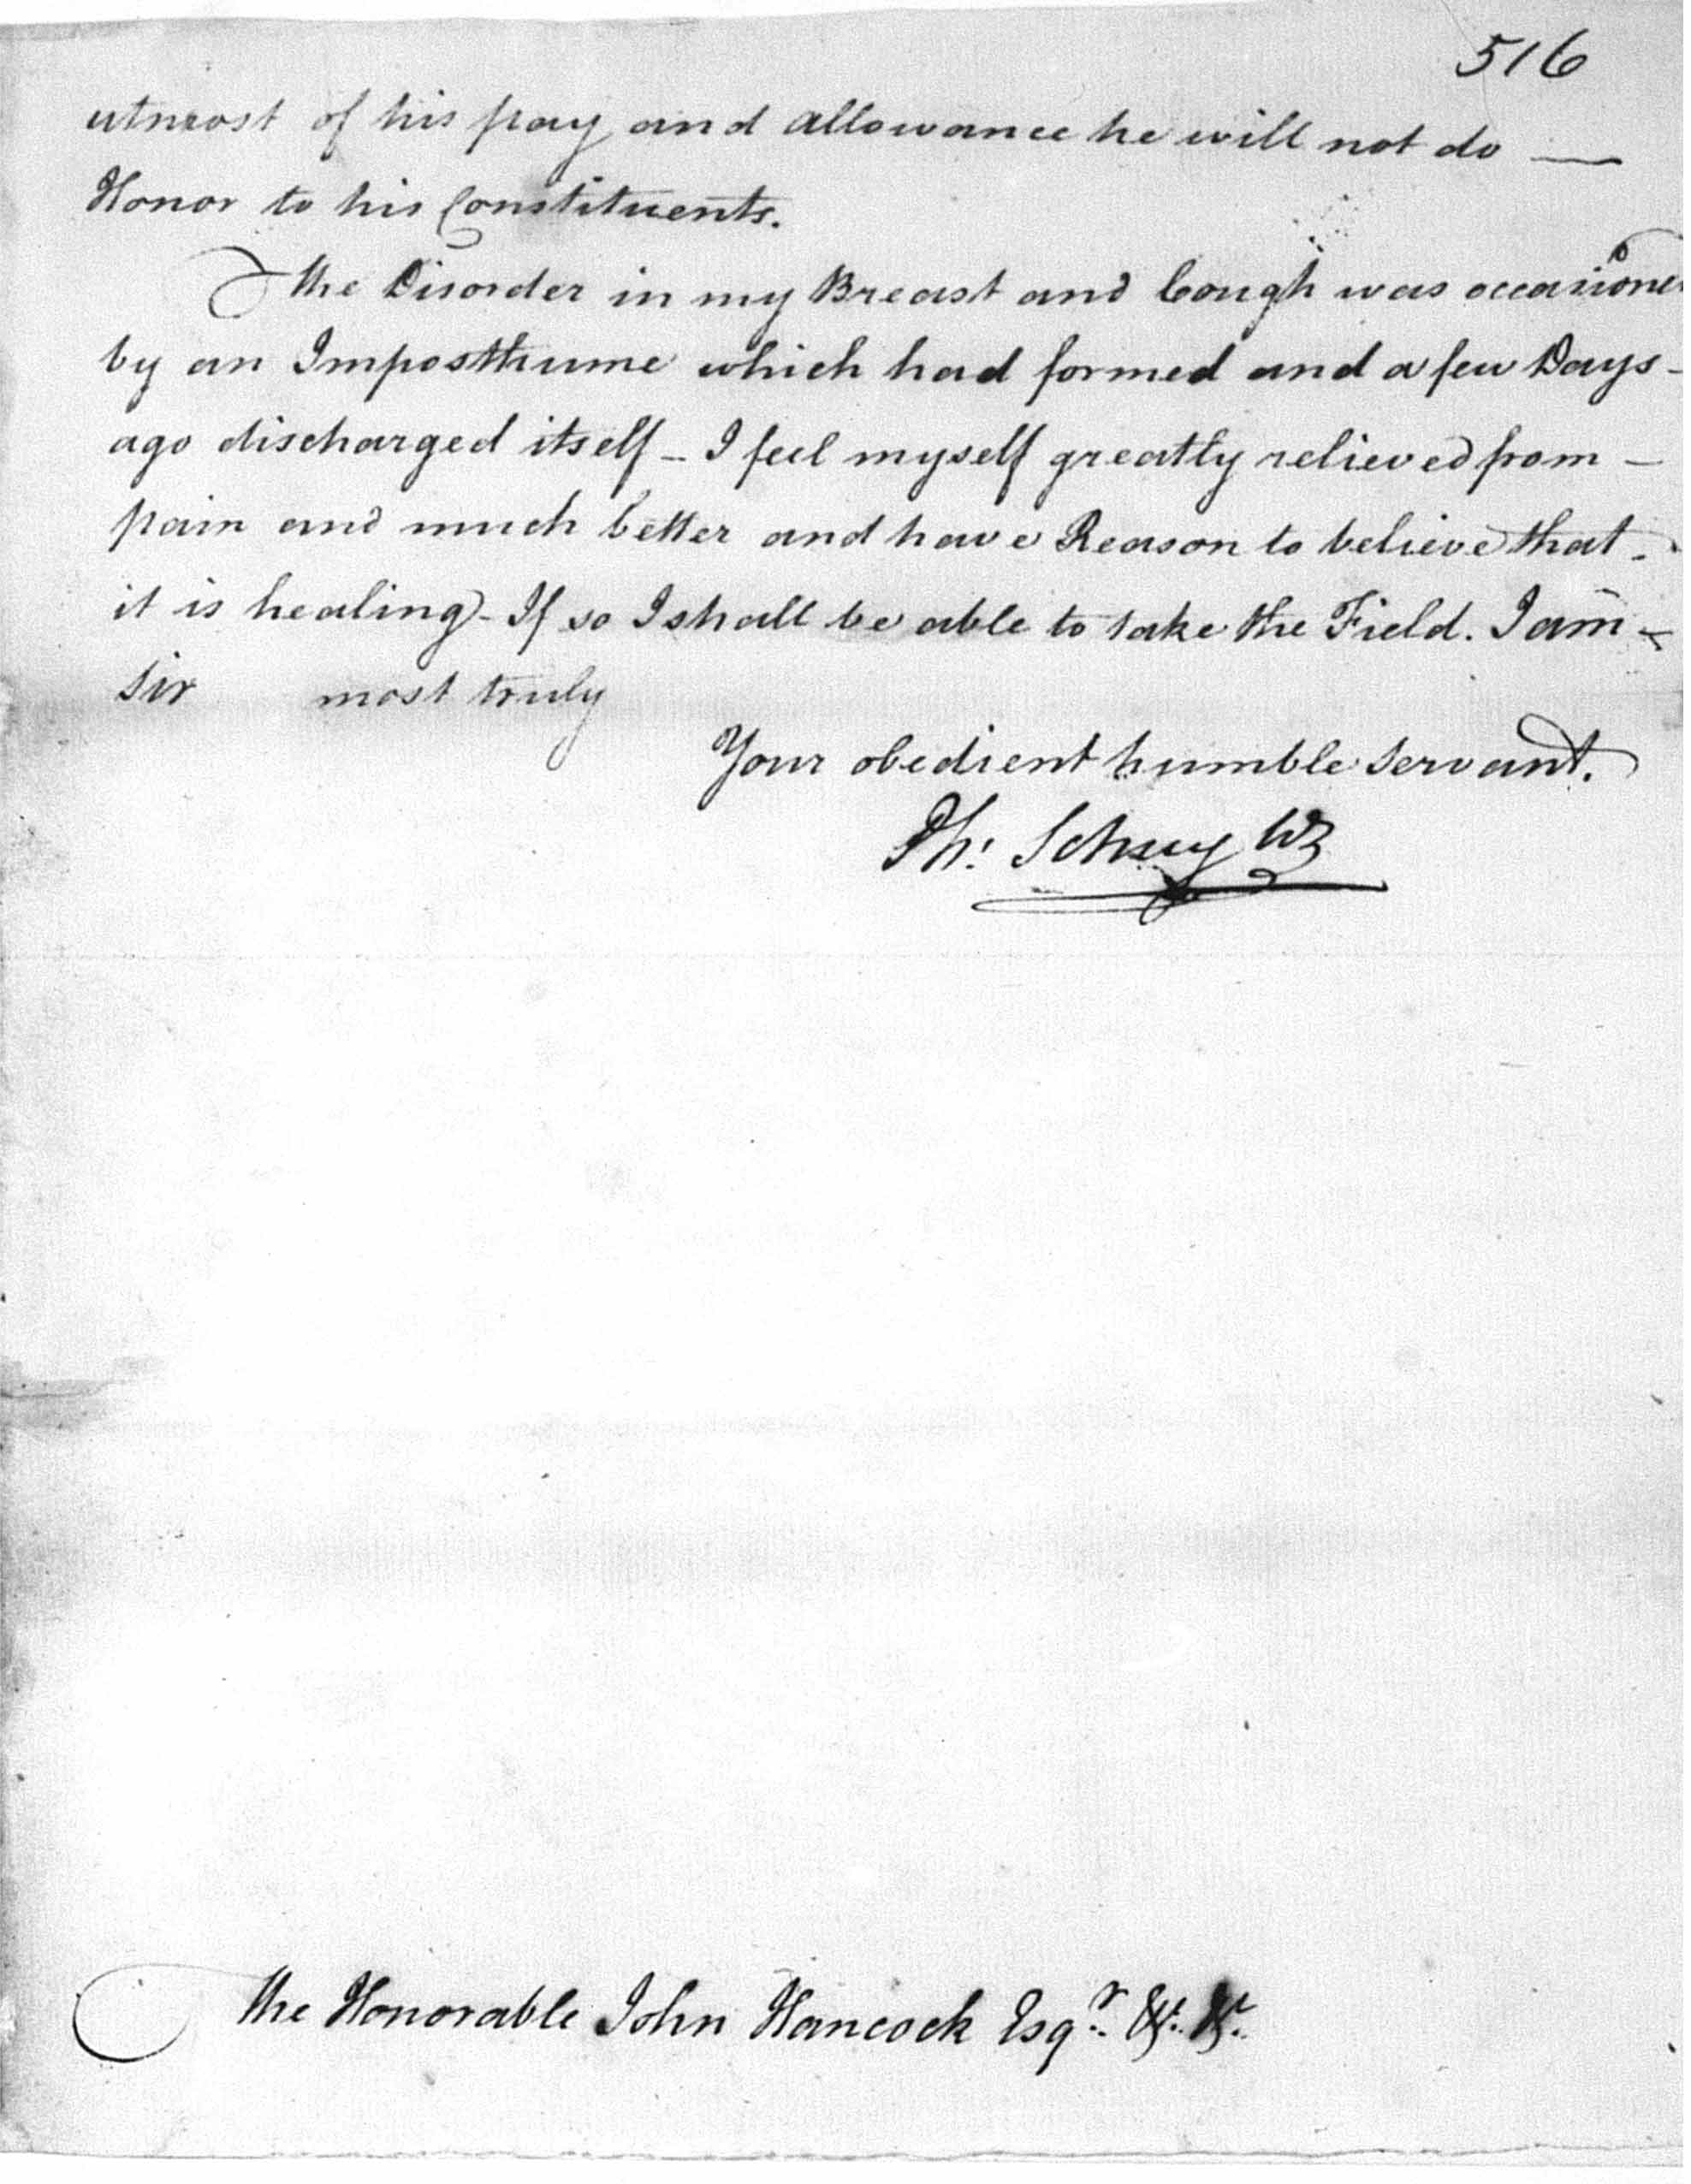 516
utmost of his pay and allowance he will not do —
Honor to his Constituents.
The Disorder in my Breast and Cough was occasioned
by an Imposthume which had formed and a few Days -
ago discharged itself - I feel myself greatly relieved from -
pain and much better and have Reason to believe that -
it is healing - If so I shall be able to take the Field. I am -
Sir most truly
Your obedient humble Servant.
Ph: Schuyler
The Honorable John Hancock Esqr. &c. &c.